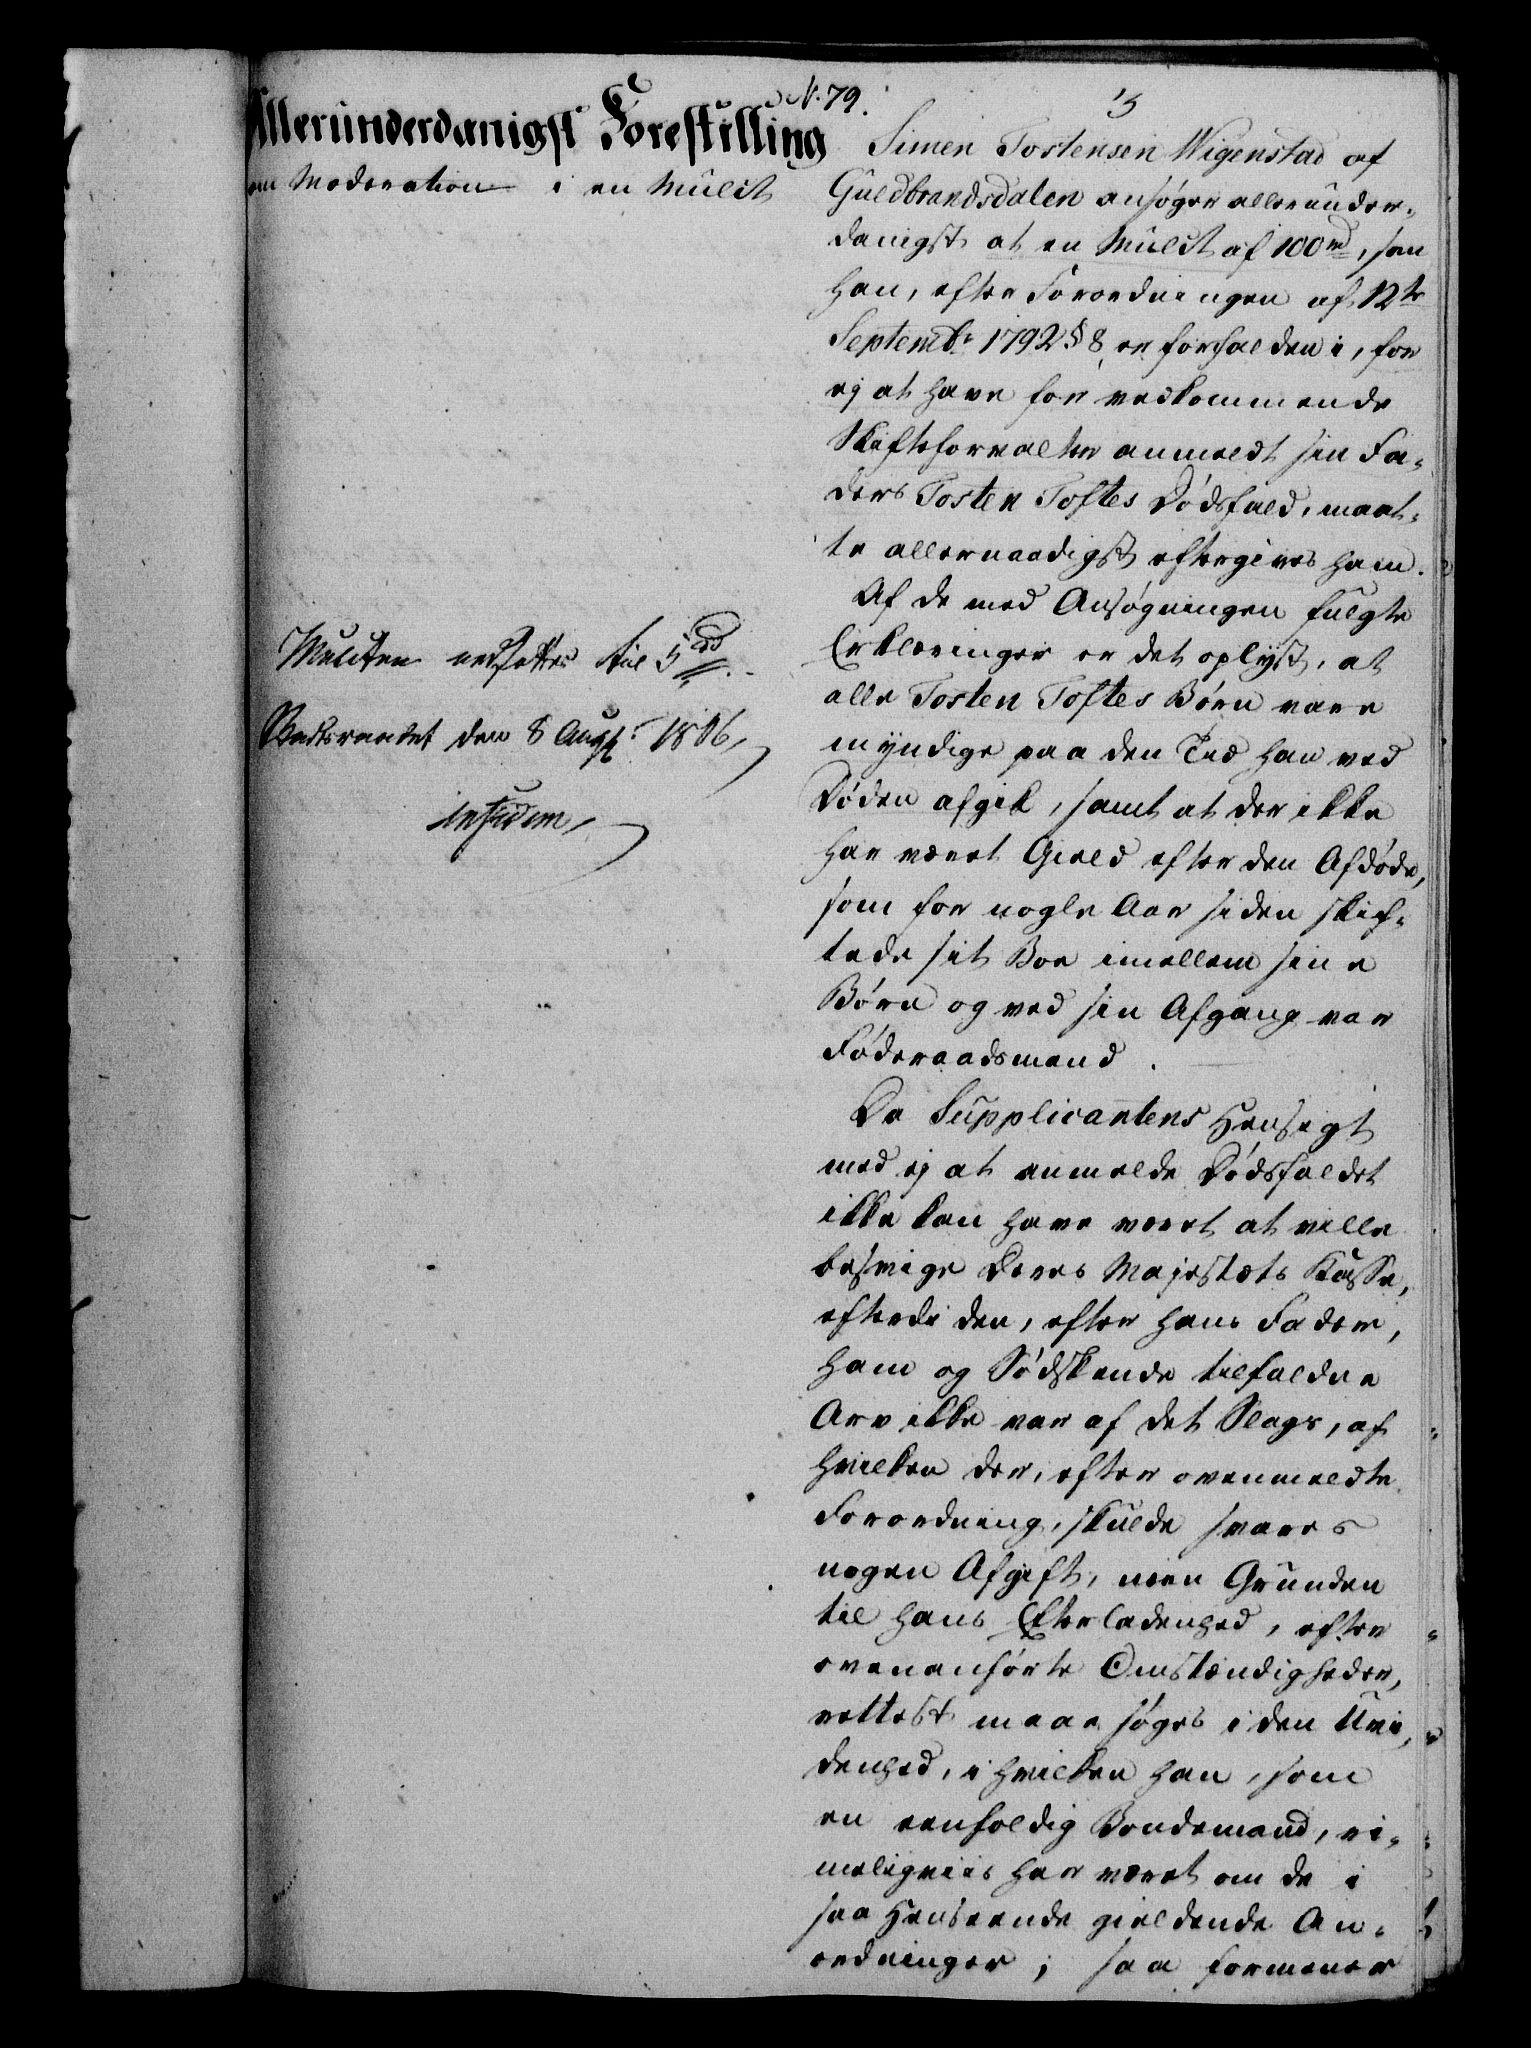 N. 79.
Allerunderdanigst Forestilling
om Moderation i en Mulct
Mulcten nedsættes til 5 rd.
den 8 Augt: 1806,
3
Simen Tostensen Wigenstad af
Guldbrandsdalen ansøger allerunder-
danigst at en Mulct af 100 rd, som
han, efter Forordningen af 12te
Septembr 1792 § 8 er forfalden i, for
ej at have for vedkommende
Skifteforvalter anmeldt sin Fa-
ders Tosten Toftes Dødsfald, maat-
te allernaadigst eftergives ham.
Af de med Ansøgningen fulgte
Erklæringer er det oplyst, at
alle Tosten Toftes Børn vare
myndige paa den Tid han ved
Døden afgik, samt at der ikke
har været Gield efter den Afdøde,
som for nogle Aar siden skif-
tede sit Boe imellem sine
Børn og ved sin Afgang var
Føderaadsmand.
Da Supplicantens Hensigt
med ej at anmelde Dødsfaldet
ikke kan have været at ville
besvige Deres Majestæts Kasse,
efterdi den, efter hans Fader,
ham og Sødskende tilfaldne
Arv ikke var af det Slags, af
hvilken der, efter ovenmeldte
Forordning, skulde svares
nogen Afgift, men Grunden
til hans Efterladenhed, efter
ovenanførte Omstændigheder,
rettest maae søges i den Uvi-
denhed, i hvilken han, som
en eenfoldig Bondemand, ri-
meligviis har været om de i
saa Henseende gieldende An-
ordninger; saa formener